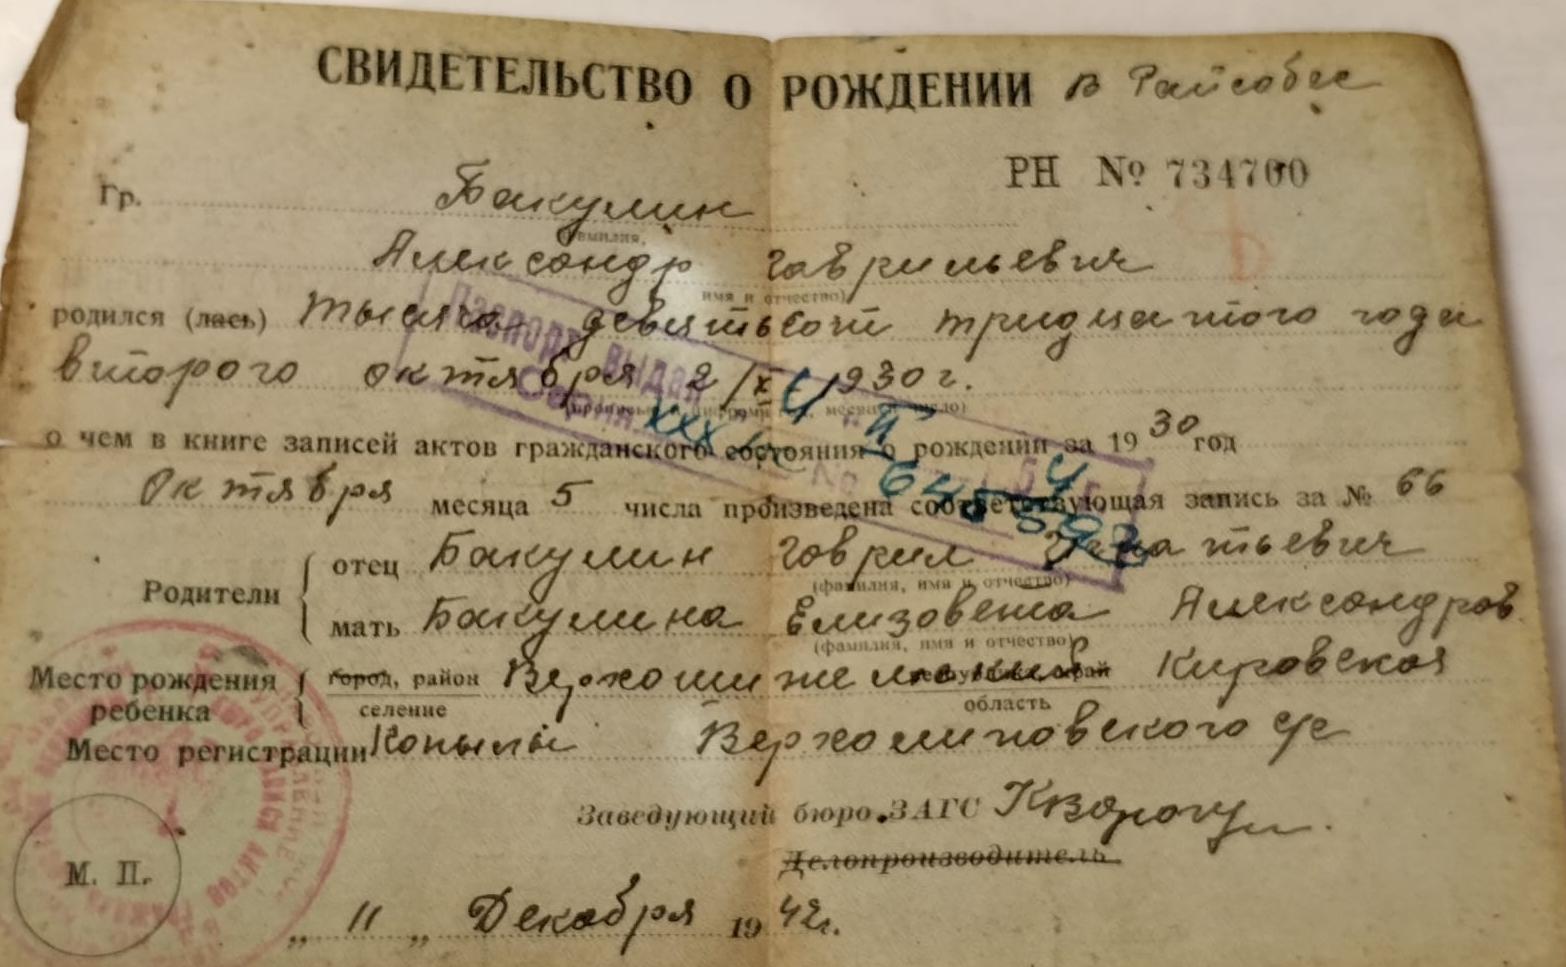 СВИДЕТЕЛЬСТВО О РОЖДЕНИИ в Райсобес
РН № 734700
Гр. Бакулин
(фамилия,
Александр Гаврильевич
имя и отчество)
родился (лась) тысяча девятьсот тридцатого года
второго октября 2/X 1930 г.
о чем в книге записей актов гражданского состояния о рождении за 1930 год
Октября месяца 5 числа произведена соответствующая запись за № 66
Родители
отец Бакулин Гаврил Игнатьевич
(фамилия, имя и отчество)
мать Бакулина Елизовета Александров
(фамилия, имя и отчество)
Место рождения ребенка
город, район Верхошижемский край Кировская
селение
область
Место регистрации Копылы с/с
Заведующий бюро ЗАГС
Делопроизводитель
М. П.
„ 11 „ Декабря 1942г.
Паспорт выдан
Серия
№